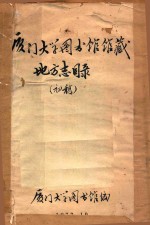 厦门大学图书馆馆藏
地方志目录
(初稿)
厦门大学图书馆编